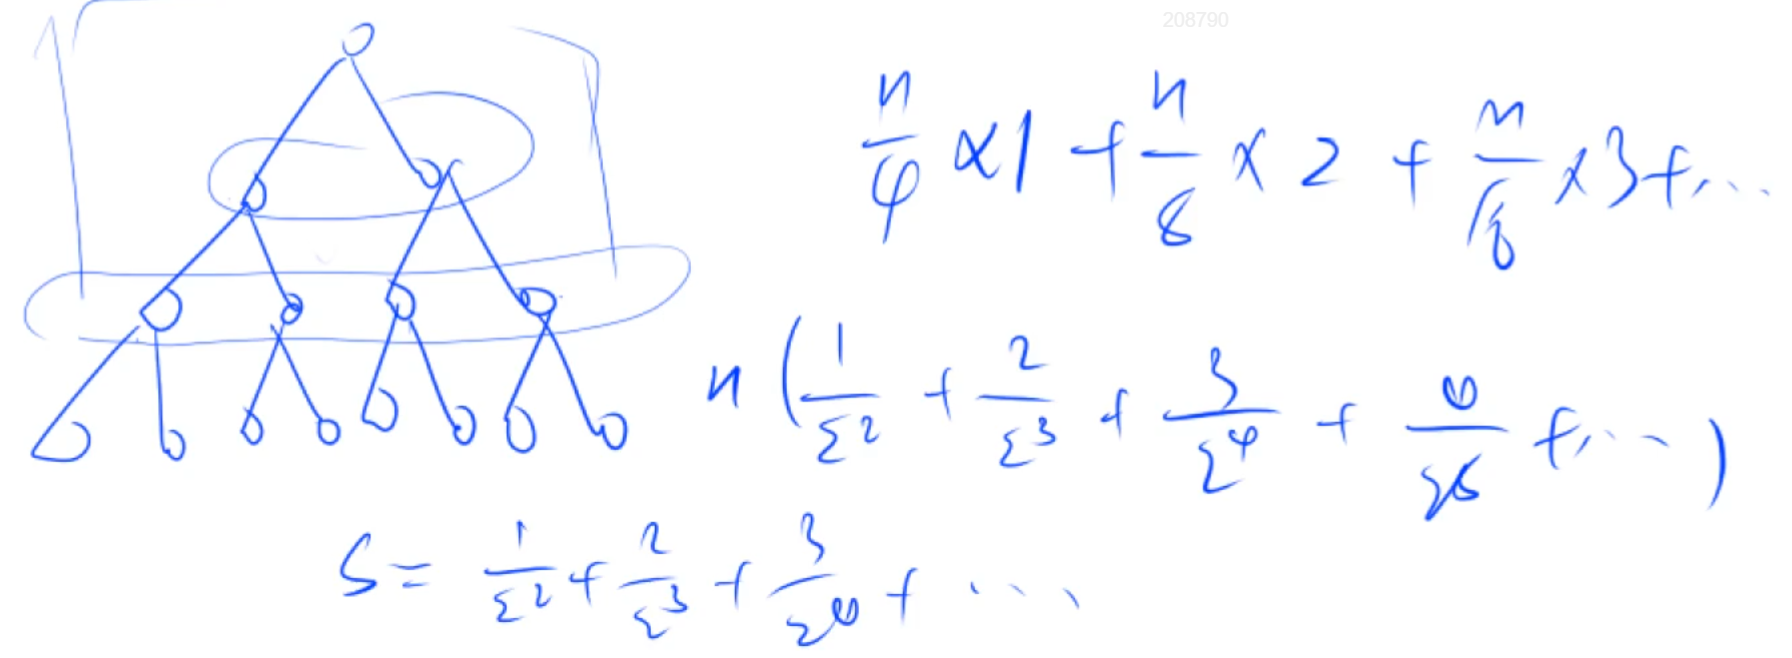 208790
n/4 × 1 + n/8 × 2 + n/16 × 3 + ...
n ( 1/2² + 2/2³ + 3/2⁴ + 4/2⁵ + ... )
S = 1/2² + 2/2³ + 3/2⁴ + ...